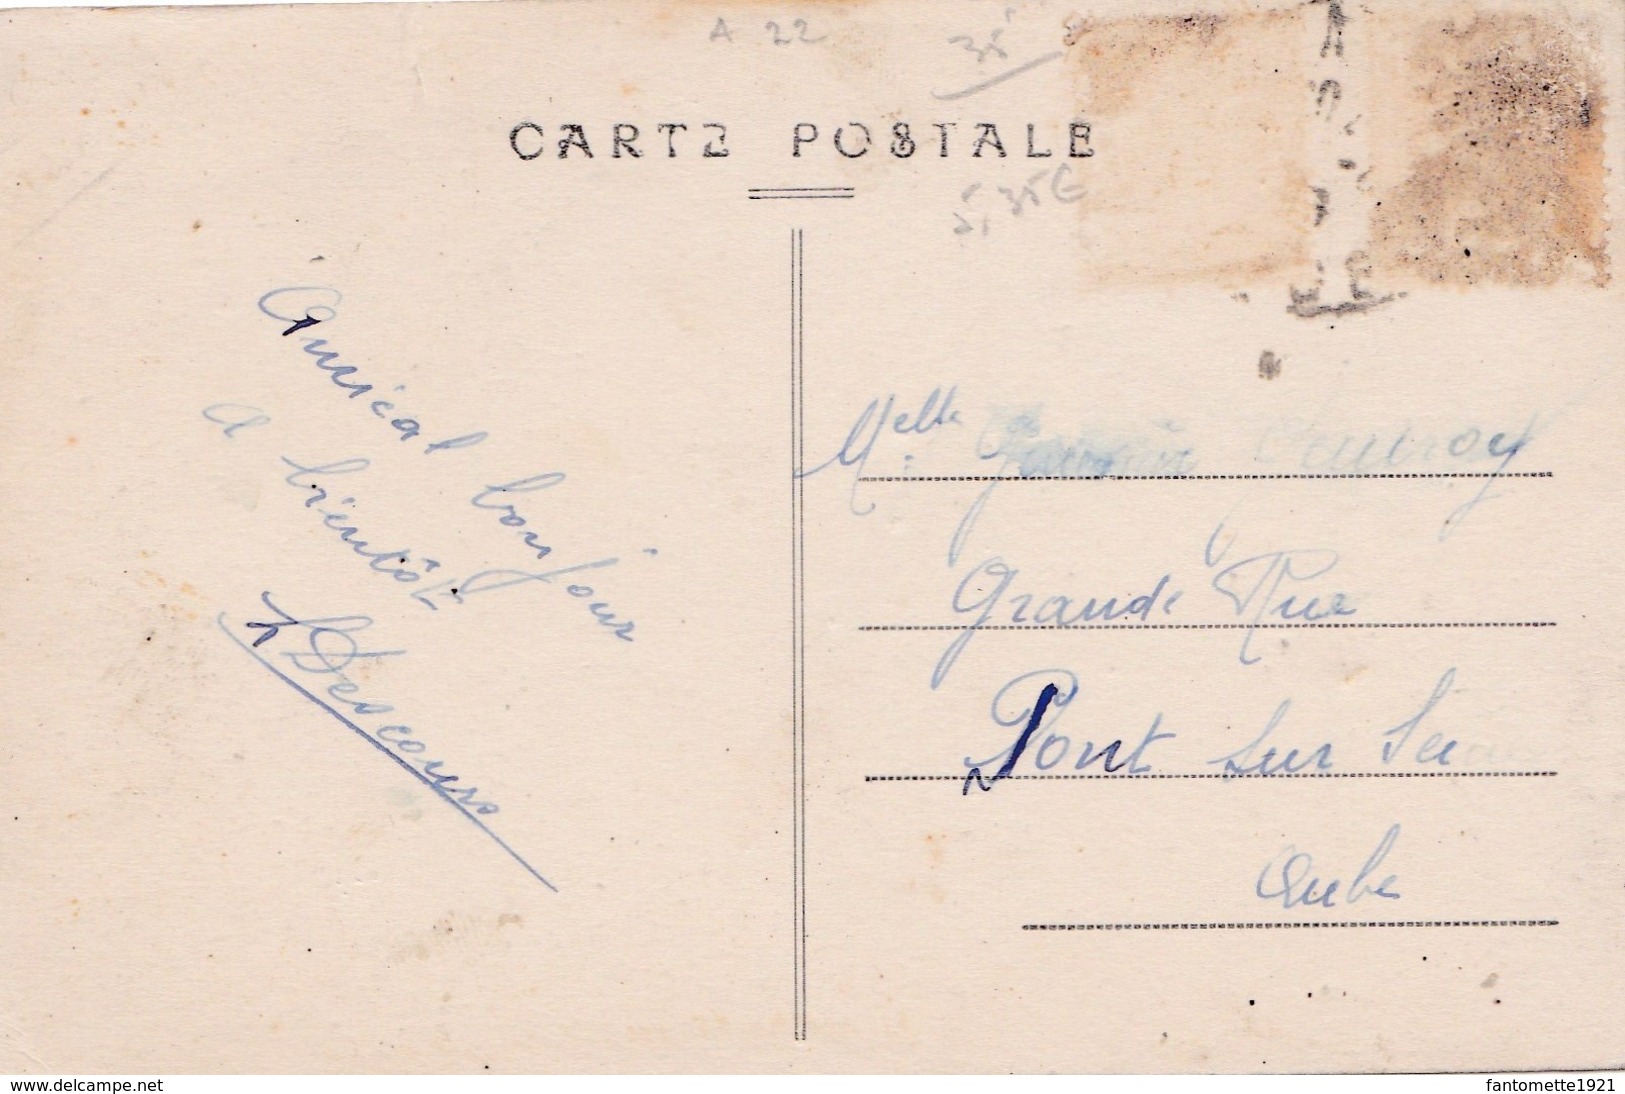 A 22
35
CARTE POSTALE
5,35€
Amical bonjour
a bientôt
Descours
Melle
Grande Rue
Pont sur Sei
Aube
www.delcampe.net
fantomette1921